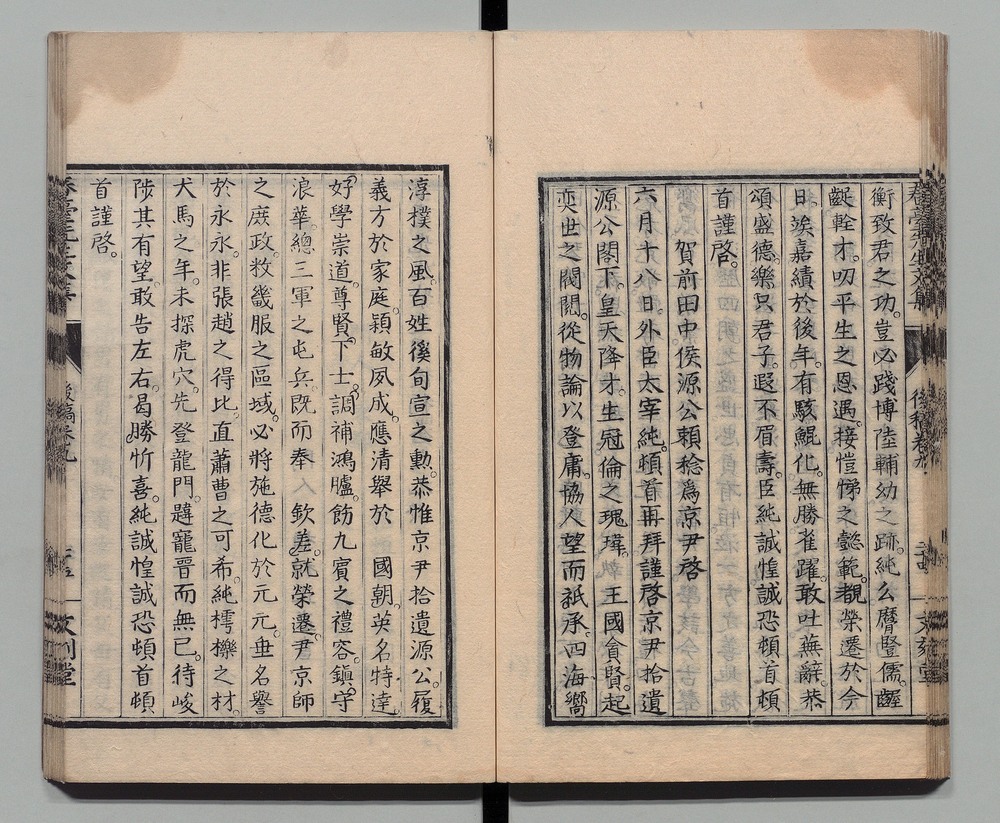 衡致君之功。豈必踐博陸輔幼之跡。純么麿豎儒。齷
齪輇才。叨平生之恩遇。接愷悌之懿範。覩榮遷於今
日。竢嘉績於後年。有駭鯤化。無勝雀躍。敢吐蕪辭。恭
頌盛德。樂只君子。遐不眉壽。臣純誠惶誠恐頓首頓
首謹啓。
賀前田中侯源公賴稔爲京尹啓
六月十八日。外臣太宰純。頓首再拜謹啓京尹拾遺
源公閣下。皇天降才。生冠倫之瑰瑋。王國貪賢。起
奕世之閥閱。從物論以登庸。協人望而祇承。四海嚮
淳樸之風。百姓徯旬宣之勳。恭惟京尹拾遺源公。履
義方於家庭。穎敏夙成。應清舉於 國朝。英名特達。
好學崇道。尊賢下士。調補鴻臚。飭九賓之禮容。鎭守
浪華。總三軍之屯兵。既而奉 欽差。就榮遷。尹京師
之庶政。救畿服之區域。必將施德化於元元。垂名譽
於永永。非張趙之得比。直蕭曹之可希。純樗櫟之材。
犬馬之年。未探虎穴。先登龍門。韙寵晋而無已。待峻
陟其有望。敢告左右。曷勝忻喜。純誠惶誠恐頓首頓
首謹啓。
後稿卷九